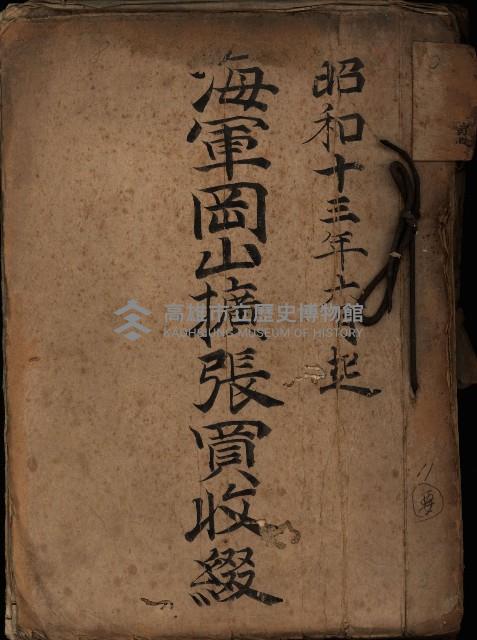 昭和十三年六月起
海軍岡山擴張買收綴
高雄市立歷史博物館
KAOHSIUNG MUSEUM OF HISTORY